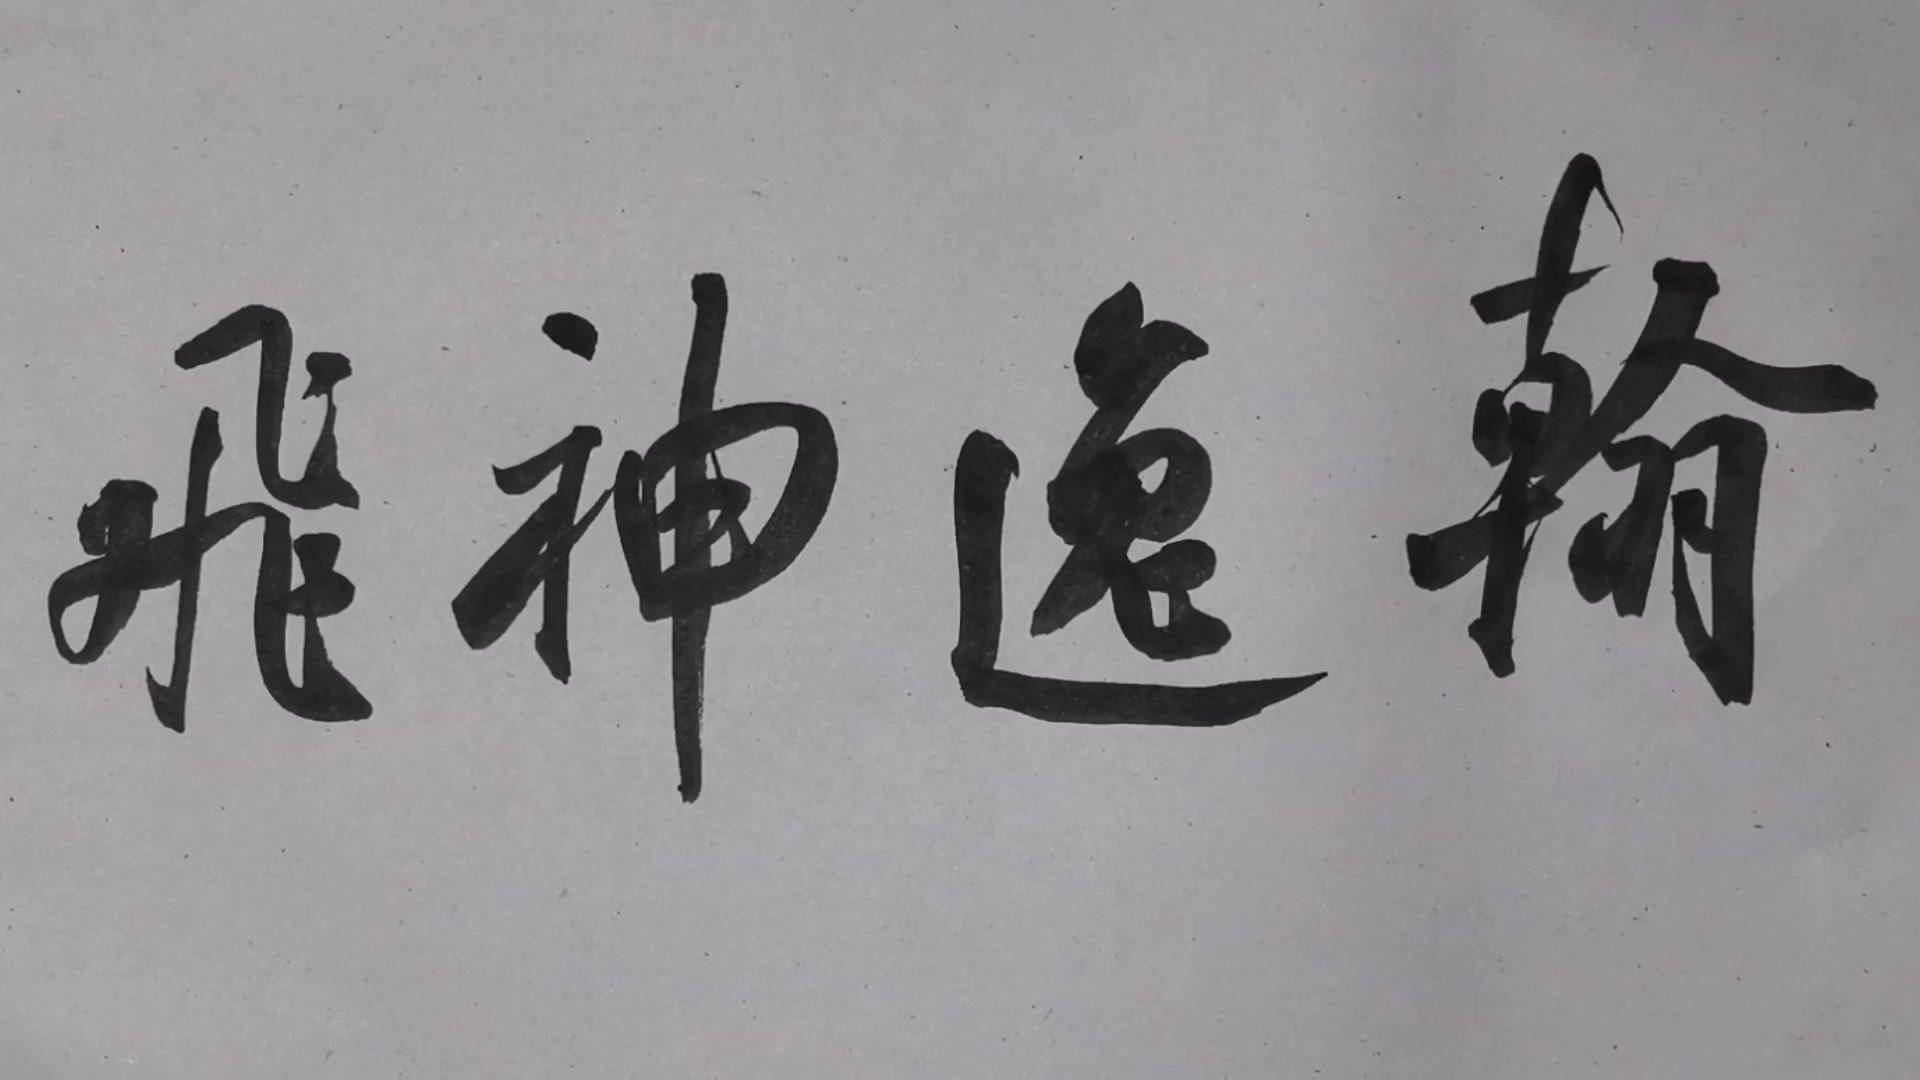 翰逸神飛